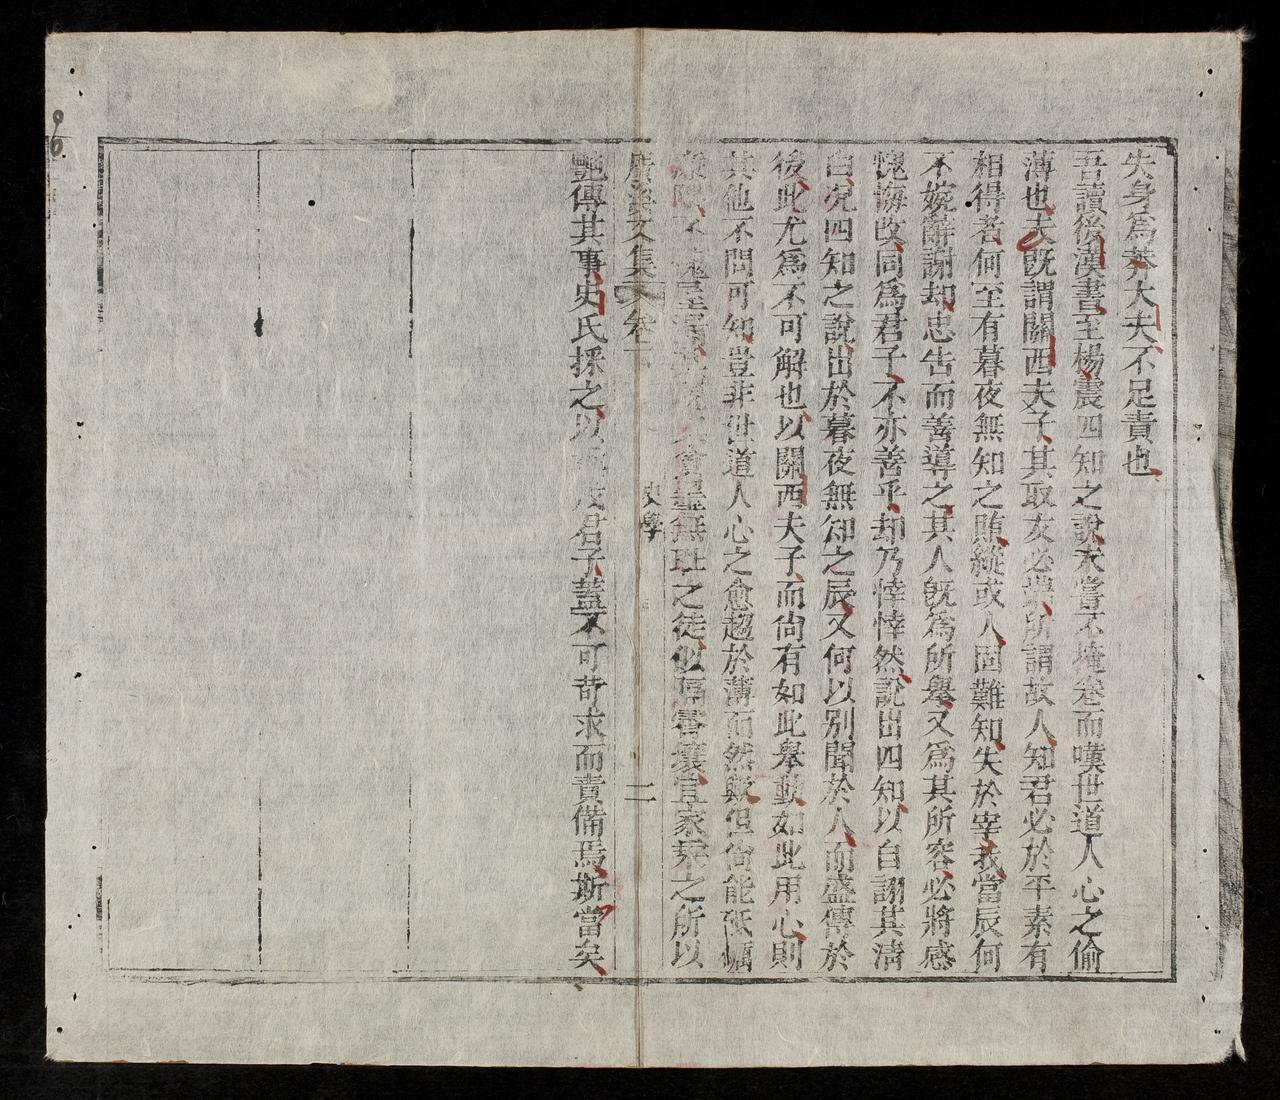 失身爲莽大夫不足責也
吾讀後漢書至楊震四知之說未嘗不掩卷而嘆世道人心之偷
薄也夫既謂關西夫子其取友必端所謂故人知君必於平素有
相得者何至有暮夜無知之賄縱或人固難知失於宰我當辰何
不婉辭謝却忠告而善導之其人既爲所舉又爲其所容必將感
愧悔改同爲君子不亦善乎却乃悻悻然說出四知以自詡其淸
白況四知之說出於暮夜無知之辰又何以別聞於人而盛傳於
後此尤爲不可解也以關西夫子而尙有如此舉動如此用心則
其他不問可知豈非世道人心之愈趨於薄而然歟但尙能砥礪
不 貪墨無恥之徒似隔霄壤宜家乘之所以
文集 卷
史學
二
艷傳其事史氏採之以 君子蓋不可苛求而責備焉斯當矣